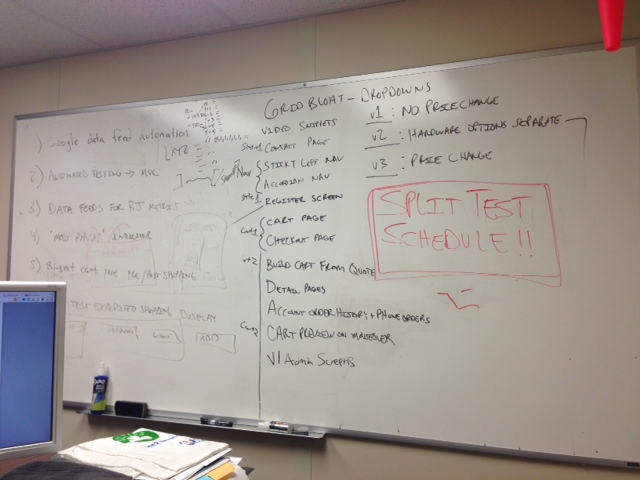 1) Google data feed automation
2) AUTOMATED TESTING → MVC
3) DATA FEEDS FOR RJ METRICS
4) 'MOST POPULAR' INDICATOR
5)
TEST EXPEDITED SHIPPING DISPLAY
XYZ
GRID BLOAT - DROPDOWNS
VIDEO SNIPPETS
CONTACT PAGE
STICKY LEFT NAV
ACCORDIAN NAV
REGISTER SCREEN
CART PAGE
CHECKOUT PAGE
BUILD CART FROM QUOTE
DETAIL PAGES
ACCOUNT ORDER HISTORY + PHONE ORDERS
CART PREVIEW ON MOUSEOVER
V1 Admin Scripts
v1 : NO PRICE CHANGE
v2 : HARDWARE OPTIONS SEPARATE
v3 : PRICE CHANGE
SPLIT TEST
SCHEDULE!!